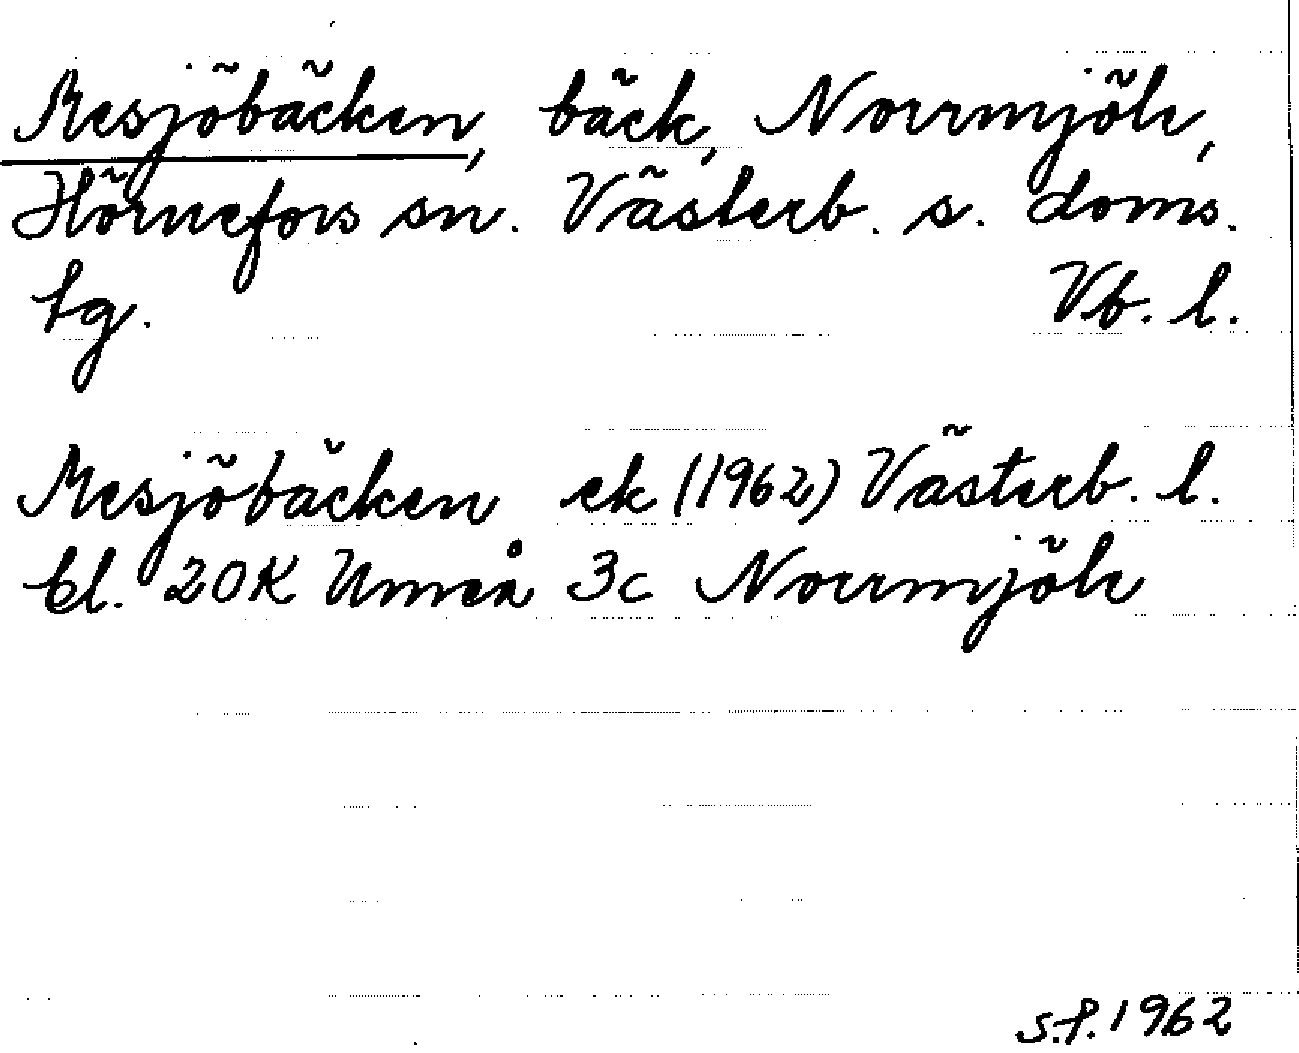 Mesjöbäcken, bäck, Norrmjöle,
Hörnefors sn. Västerb. s. doms.
tg. Vb. l.
Mesjöbäcken ek (1962) Västerb. l.
bl. 20K Umeå 3c Norrmjöle
s.f. 1962